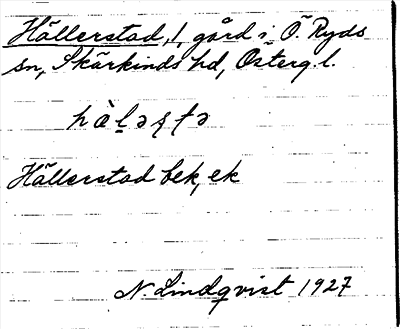 Hällerstad, 1, gård i Ö. Ryds
sn, Skärkinds hd, Österg. l.
Hällerstad bek, ek
N. Lindqvist 1927